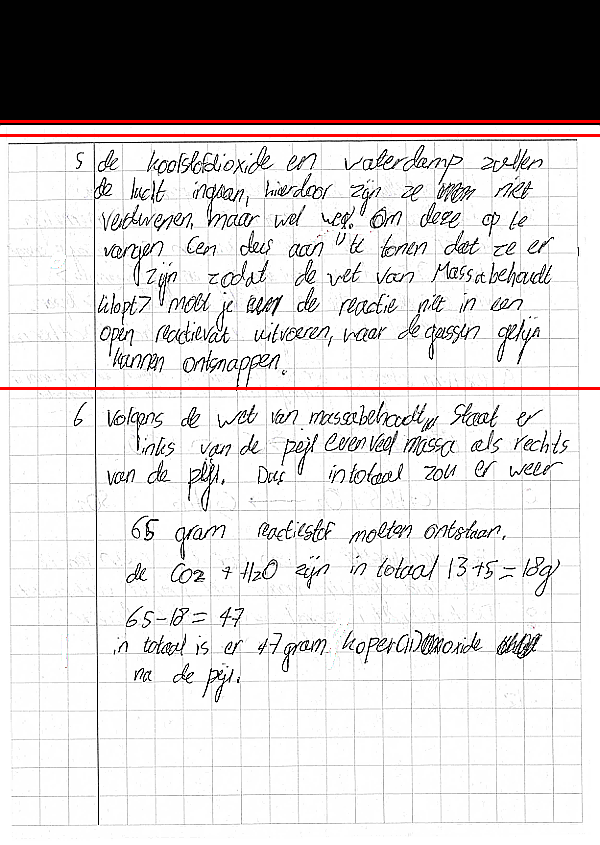 5 de koolstofdioxide en waterdamp zullen
de lucht ingaan, hierdoor zijn ze niet
verdwenen, maar wel weg. Om deze op te
vangen en dus aan te tonen dat ze er
zijn zodat de wet van Massabehoudt
klopt? moet je de reactie niet in een
open reactievat uitvoeren, waar de gassen gelijk
kunnen ontsnappen.
6 Volgens de wet van massabehoudt, Staat er
links van de pijl evenveel massa als rechts
van de pijl. Dus in totaal zou er weer
65 gram reactiestof moeten ontstaan.
de CO2 + H2O zijn in totaal 13+5=18g
65-18=47
in totaal is er 47 gram koper(II)oxide
na de pijl.